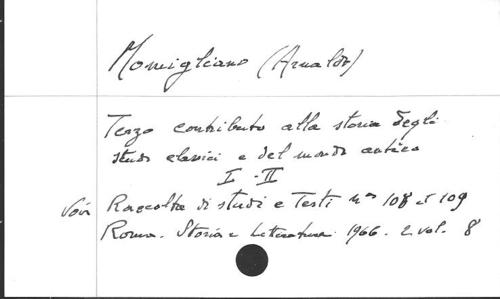 Momigliano (Arnaldo)
Terzo contributo alla storia degli
studi classici e del mondo antico
I - II
Voir Raccolta di studi e Testi nos 108 et 109
Roma. Storia e Letteratura 1966. 2 vol. 8